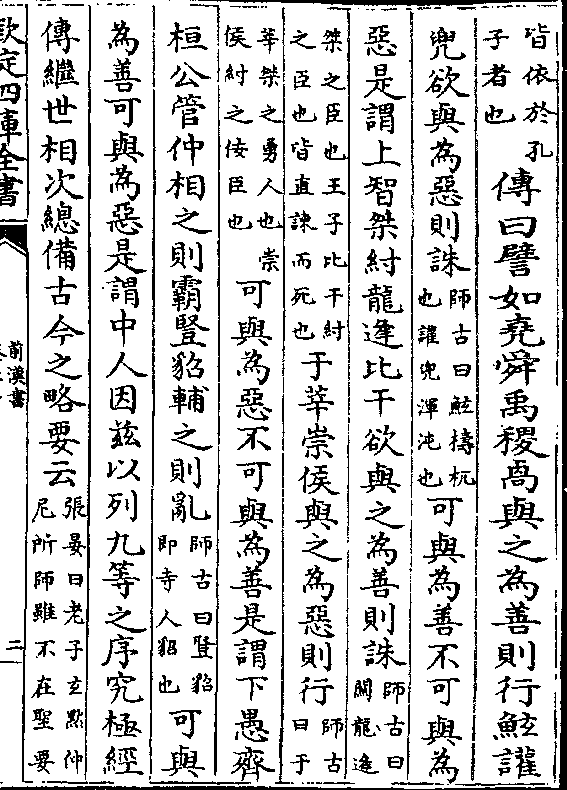 皆依於孔
子者也
傳曰譬如堯舜禹稷卨與之為善則行鮌讙
兜欲與為惡則誅
師古曰鮌檮杌
也讙兜渾沌也
可與為善不可與為
惡是謂上智桀紂龍逄比干欲與之為善則誅
師古曰
關龍逄
桀之臣也王子比干紂
之臣也皆直諫而死也
于莘崇侯與之為惡則行
師古
曰于
莘桀之勇人也崇
侯紂之佞臣也
可與為惡不可與為善是謂下愚齊
桓公管仲相之則霸豎貂輔之則亂
師古曰豎貂
即寺人貂也
可與
為善可與為惡是謂中人因茲以列九等之序究極經
傳繼世相次總備古今之略要云
張晏曰老子玄默仲
尼所師雖不在聖要
欽定四庫全書
前漢書
二